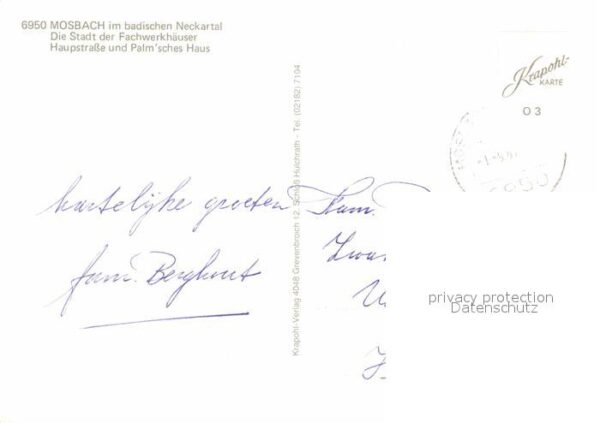 6950 MOSBACH im badischen Neckartal
Die Stadt der Fachwerkhäuser
Haupstraße und Palm'sches Haus
Krapohl-
KARTE
03
hartelijke groeten
fam. Berghout
Fam.
Krapohl-Verlag 4048 Grevenbroich 12, Schloß Hülchrath - Tel. (02182) 7104
privacy protection
Datenschutz